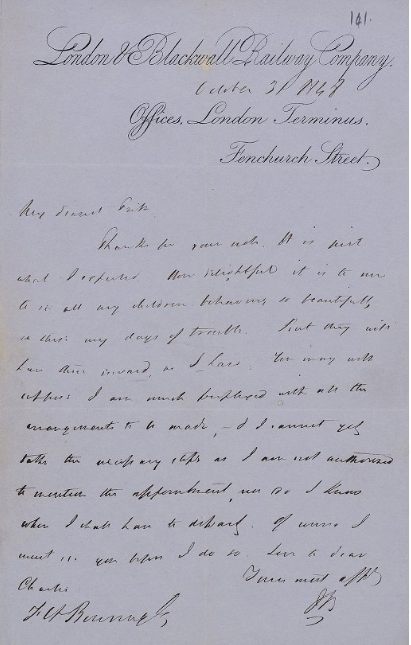 141.
London & Blackwall Railway Company.
October 31 1848
Offices, London Terminus.
Fenchurch Street.
My dearest
Thanks for your note. It is just
what I expected How delightful it is to me
to see all my children behaving so beautifully
in these my days of trouble. But they will
have their reward, as I have. You may well
suppose I am much perplexed with all the
arrangements to be made, – & I cannot yet
take the necessary steps as I am not authorized
to mention the appointment, nor do I know
when I shall have to depart. Of course I
must see you before I do so. Love to dear
Charlie
Yours most affly